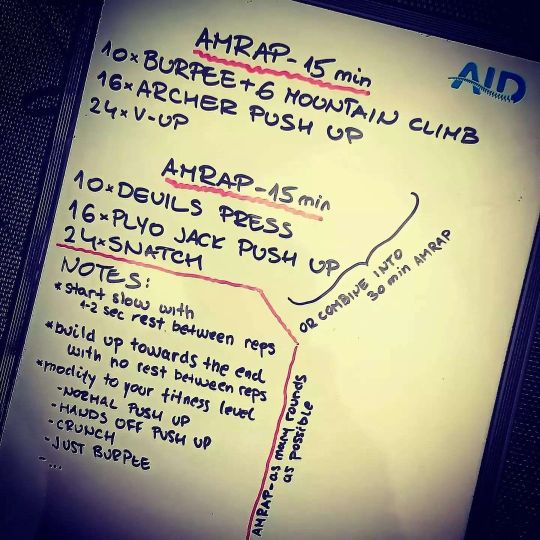 AMRAP-15 min
AID
10xBURPEE+6 MOUNTAIN CLIMB
16xARCHER PUSH UP
24xV-UP
AMRAP-15 min
10xDEVILS PRESS
16xPLYO JACK PUSH UP
24xSNATCH
OR COMBINE INTO
30 min AMRAP
NOTES:
*start slow with
1-2 sec rest between reps
*build up towards the end
with no rest between reps
*modify to your fitness level
-NORMAL PUSH UP
-HANDS OFF PUSH UP
-CRUNCH
-JUST BURPEE
-...
AMRAP-as many rounds
as possible